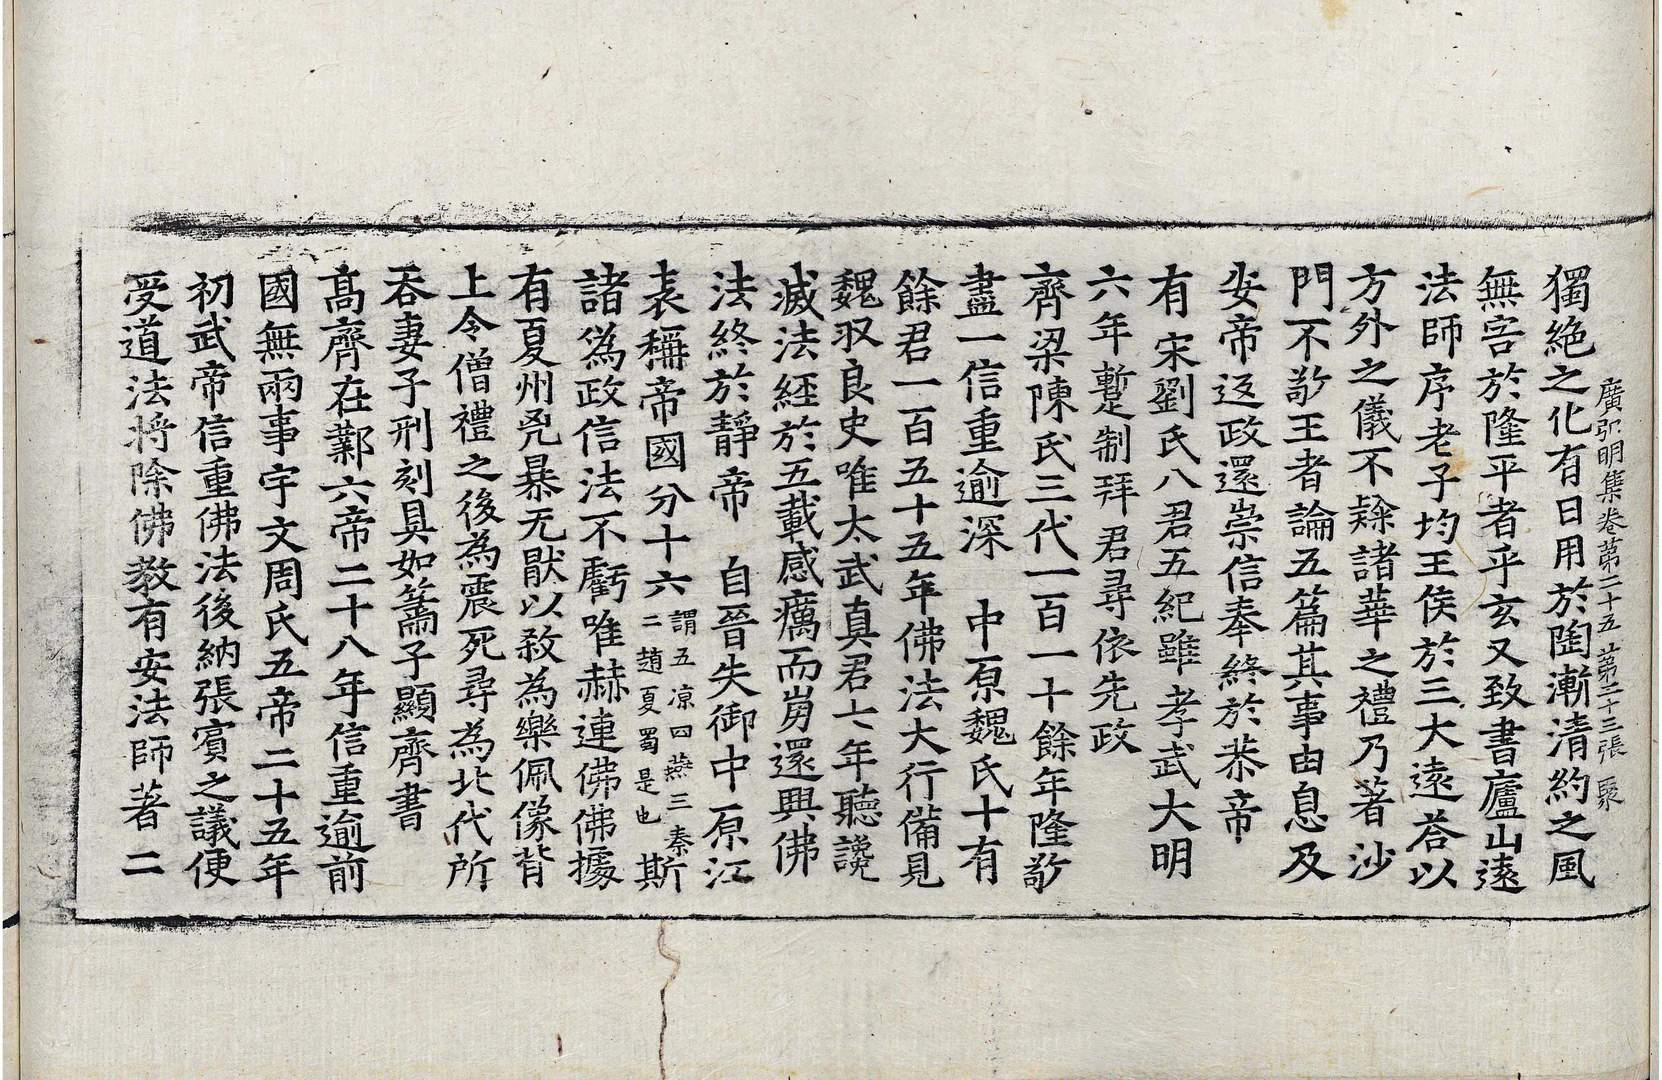 廣弘明集卷第二十五 第三十三張 聚
獨絶之化有日用於陶漸清約之風
無害於隆平者乎玄又致書廬山遠
法師序老子均王侯於三大遠荅以
方外之儀不隸諸華之禮乃著沙
門不敬王者論五篇其事由息及
安帝返政還崇信奉終於恭帝
有宋劉氏八君五紀雖孝武大明
六年暫制拜君尋依先政
齊梁陳氏三代一百一十餘年隆敬
盡一信重逾深 中原魏氏十有
餘君一百五十五年佛法大行備見
魏収良史唯太武真君七年聽讒
滅法經於五載感癘而崩還興佛
法終於靜帝 自晉失御中原江
表稱帝國分十六謂五凉四燕三秦二趙夏蜀是也斯
諸爲政信法不虧唯赫連佛佛據
有夏州兇暴无猒以敎為樂佩像背
上令僧禮之後為震死尋為北代所
吞妻子刑刻具如蕭子顯齊書
高齊在鄴六帝二十八年信重逾前
國無兩事宇文周氏五帝二十五年
初武帝信重佛法後納張賓之議便
受道法將除佛教有安法師著二